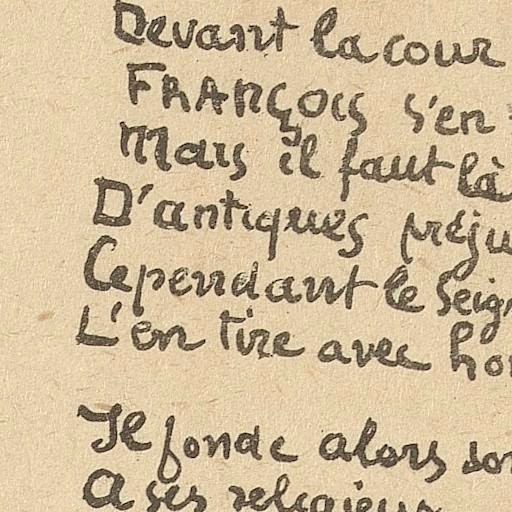 Devant la cour
FRANÇOIS s'en
Mais il faut là
D'antiques préju
Cependant le Seig
L'en tire avec ho
Il fonde alors so
A ses religieux